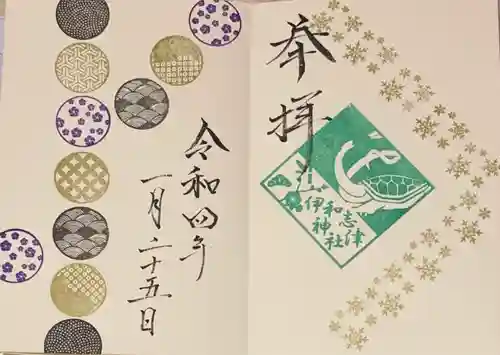 奉拝
志津
和神社
伊
令和四年
一月二十五日